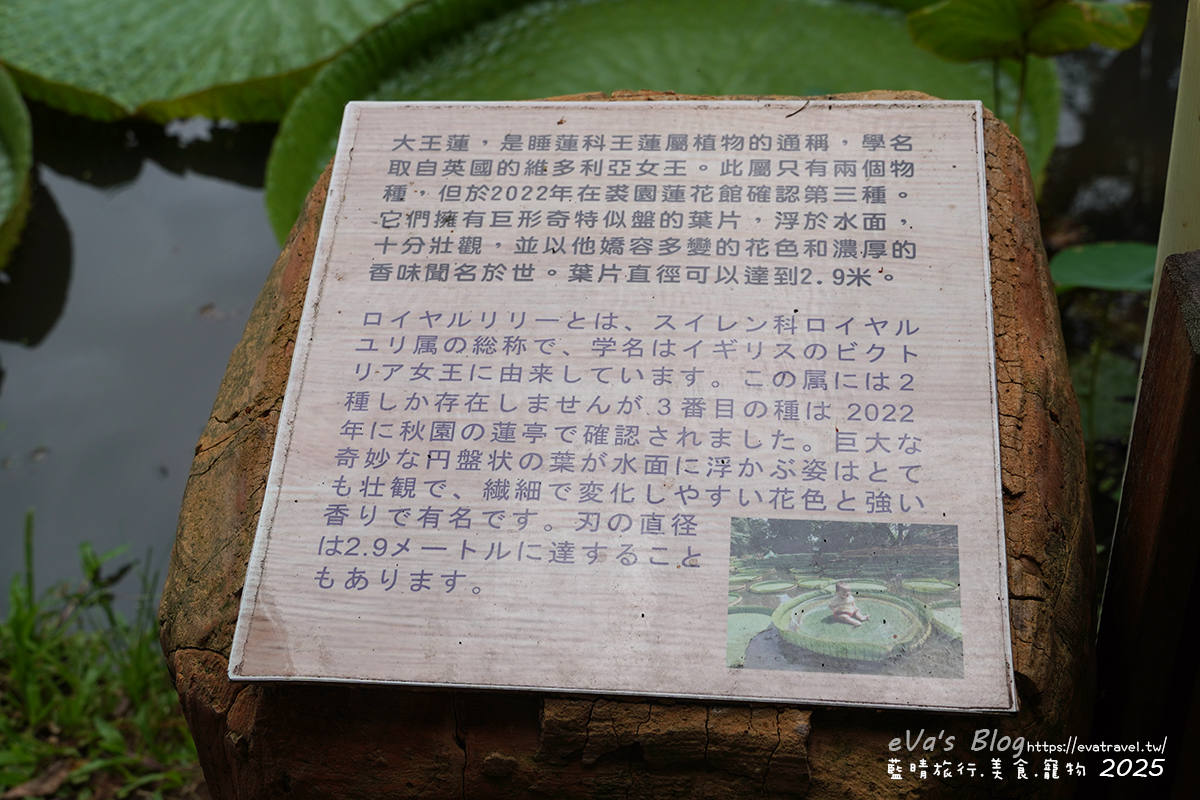 大王蓮，是睡蓮科王蓮屬植物的通稱，學名
取自英國的維多利亞女王。此屬只有兩個物
種，但於2022年在裘園蓮花館確認第三種。
它們擁有巨形奇特似盤的葉片，浮於水面，
十分壯觀，並以他嬌容多變的花色和濃厚的
香味聞名於世。葉片直徑可以達到2.9米。
ロイヤルリリーとは、スイレン科ロイヤル
ユリ属の総称で、学名はイギリスのビクト
リア女王に由来しています。この属には２
種しか存在しませんが３番目の種は 2022
年に秋園の蓮亭で確認されました。巨大な
奇妙な円盤状の葉が水面に浮かぶ姿はとて
も壮観で、繊細で変化しやすい花色と強い
香りで有名です。刃の直径
は2.9メートルに達すること
もあります。
eVa's Blog https://evatravel.tw/
藍晴旅行.美食.寵物 2025